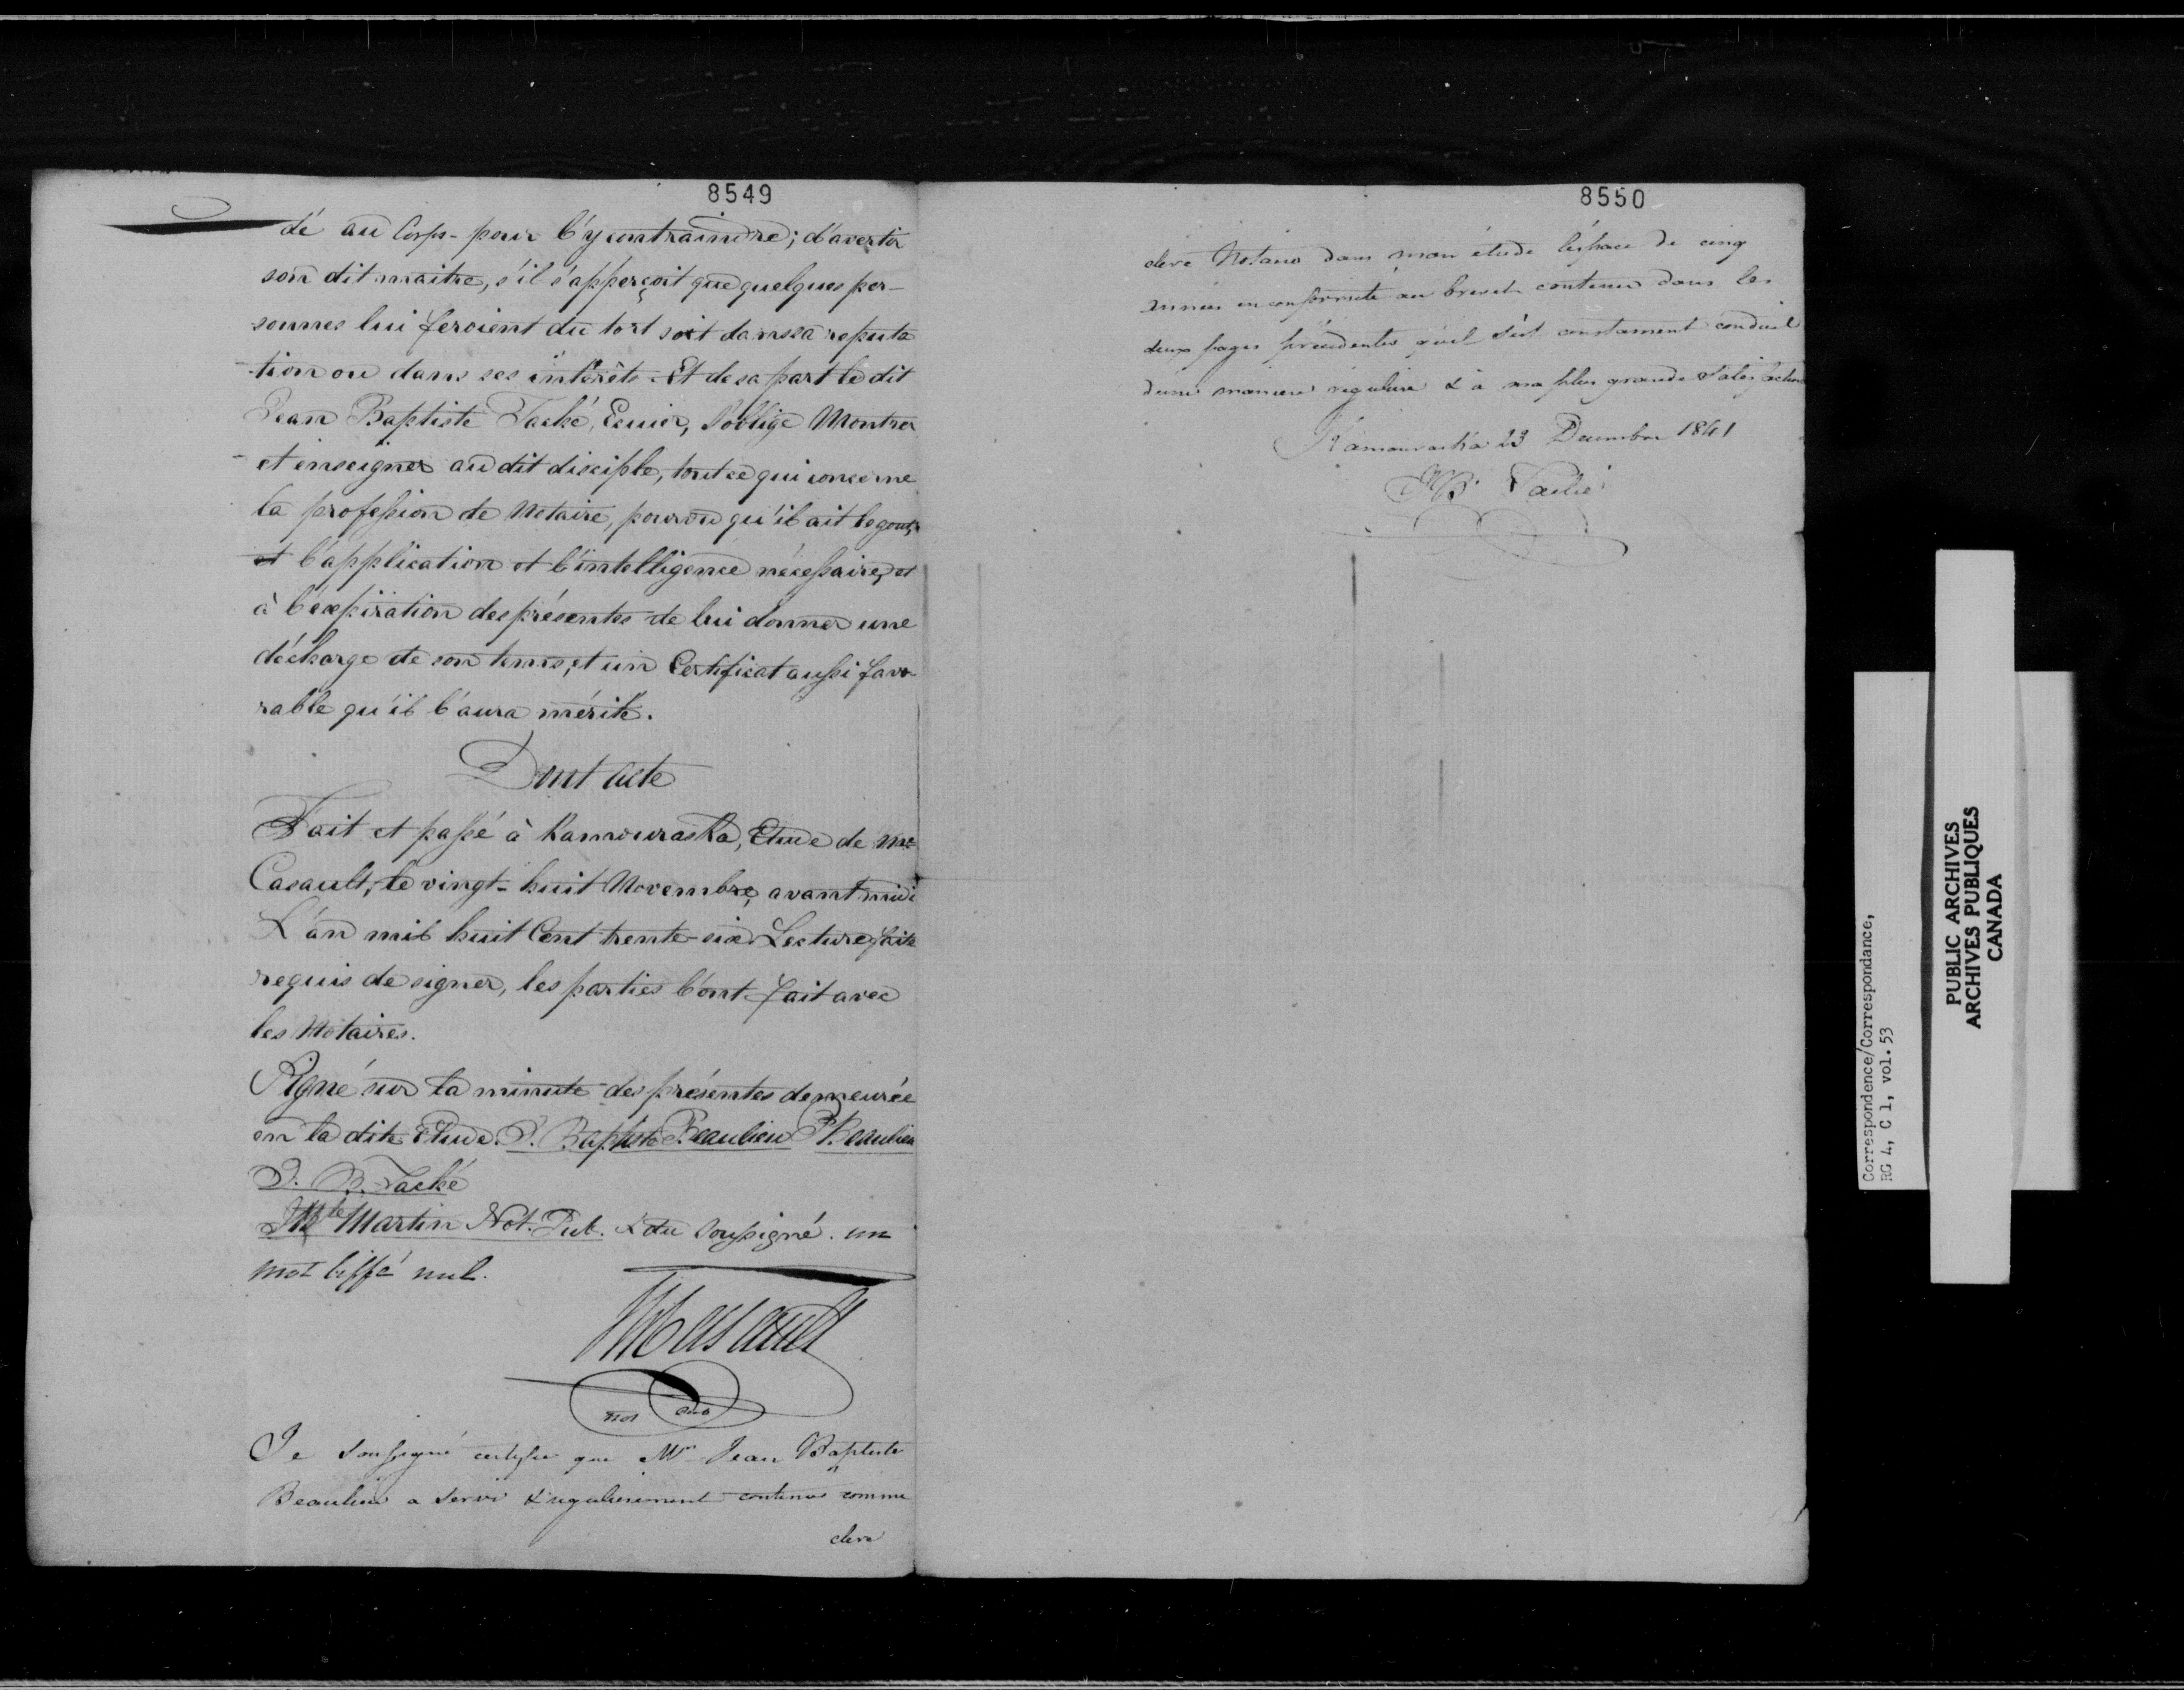 8549
dé au Corps pour l'y contraindre; d'avertir
son dit maitre, s'il s'apperçoit que quelques per-
sonnes lui feroient du tort soit dans sa reputa
-tion ou dans ses intérêts. Et de sa part le dit
Jean Baptiste Taché, Ecuier, s'oblige Montrer
et enseigner au dit disciple, tout ce qui concerne
la profession de Notaire, pourvu qu'il ait le gout,
et l'application et l'intelligence nécessaire, et
à l'expiration des présentes de lui donner une
décharge de son tems, et un Certificat aussi favo-
rable qu'il l'aura mérité.
Dont Acte
Fait et passé à Kamouraska, Etude de Mtre
Casault, le vingt-huit Novembre, avant midi
L'an mil huit Cent trente-six Lecture faite
requis de signer, les parties l'ont fait avec
les Notaires.
Signé sur la minute des présentes demeurée
en la dite Etude. J. Baptiste Beaulieu P Beaulieu
J. B. Taché
J Bte Martin Not. Pub. & du Soussigné. un
mot biffé nul.
Casault
Not Pub
Je Soussigné certifie que Mr Jean Baptiste
Beaulieu a servi & régulièrement continué comme
clerc
8550
clerc Notaire dans mon étude l'espace de cinq
années en conformité au brevet contenu dans les
deux pages précédentes qu'il s'est constament conduit
d'une manière régulière & à ma plus grande satisfaction
Kamouraska 23 Decembre 1841
JB Taché
Correspondence/Correspondance,
RG 4, C 1, vol.53
PUBLIC ARCHIVES
ARCHIVES PUBLIQUES
CANADA